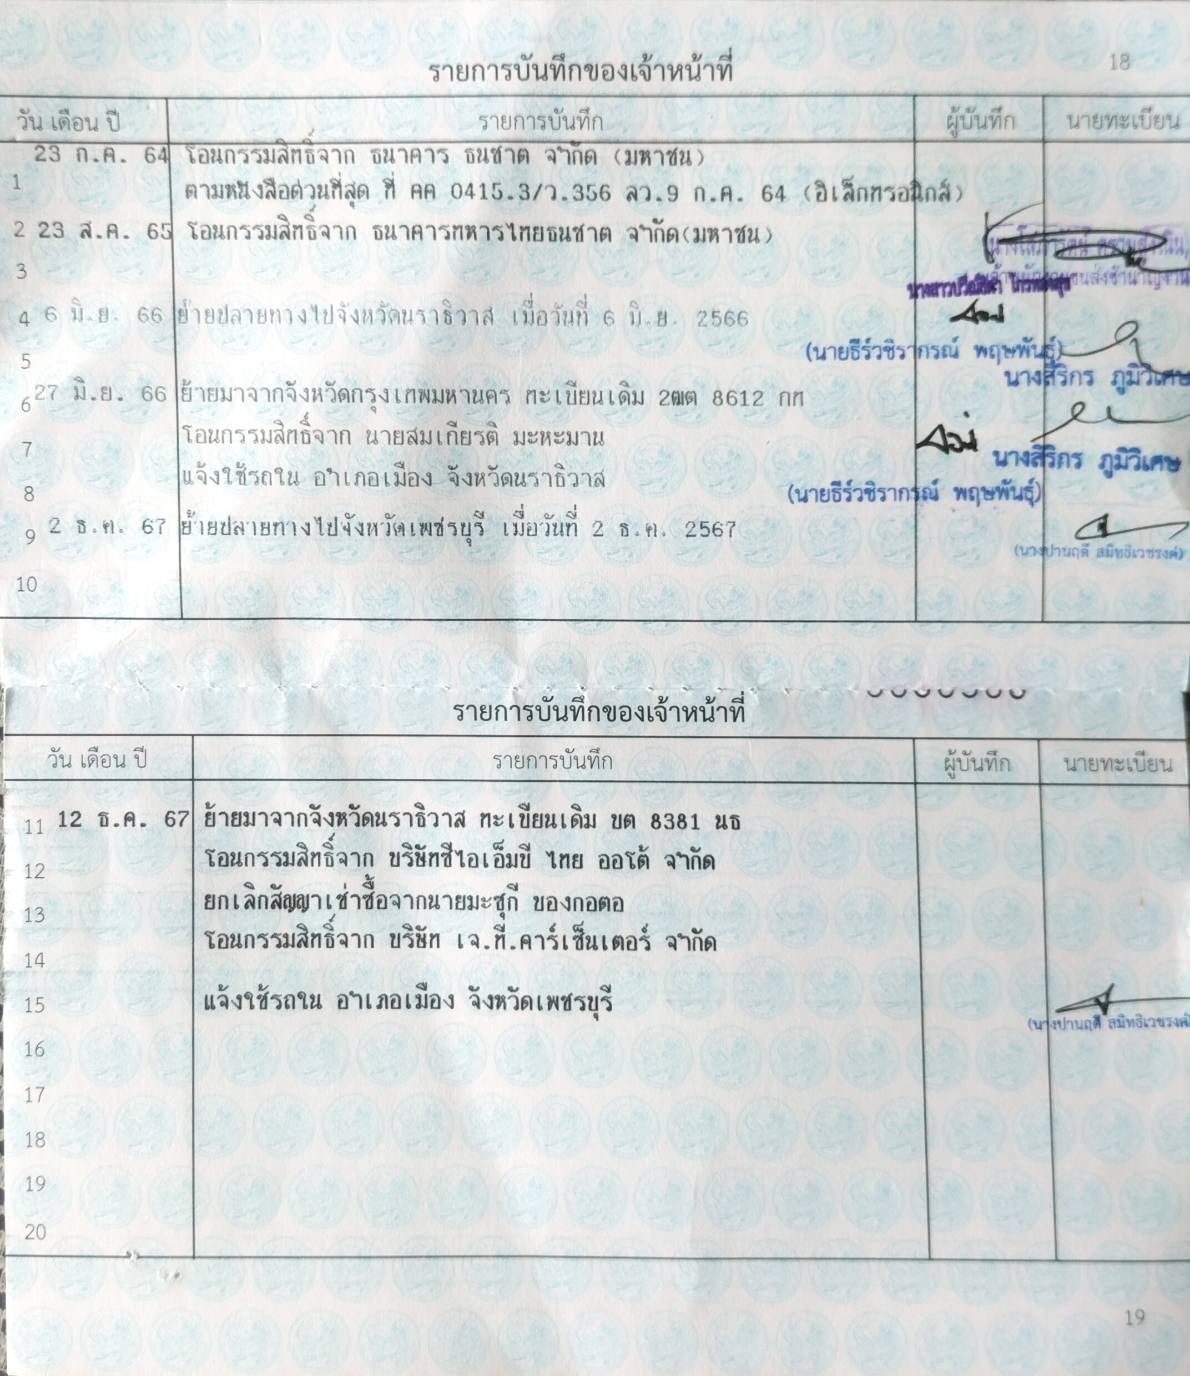 18
รายการบันทึกของเจ้าหน้าที่
วัน เดือน ปี รายการบันทึก ผู้บันทึก นายทะเบียน
23 ก.ค. 64 โอนกรรมสิทธิ์จาก ธนาคาร ธนชาต จำกัด (มหาชน)
1 ตามหนังสือด่วนที่สุด ที่ คค 0415.3/ว.356 ลว.9 ก.ค. 64 (อิเล็กทรอนิกส์)
2 23 ส.ค. 65 โอนกรรมสิทธิ์จาก ธนาคารทหารไทยธนชาต จำกัด(มหาชน)
3
4 6 มิ.ย. 66 ย้ายปลายทางไปจังหวัดนราธิวาส เมื่อวันที่ 6 มิ.ย. 2566
(นายธีร์วชิรากรณ์ พฤษพันธุ์)
5
นางสิริกร ภูมิวิเศษ
6 27 มิ.ย. 66 ย้ายมาจากจังหวัดกรุงเทพมหานคร ทะเบียนเดิม 2ฒต 8612 กท
7 โอนกรรมสิทธิ์จาก นายสมเกียรติ มะหะมาน
นางสิริกร ภูมิวิเศษ
แจ้งใช้รถใน อำเภอเมือง จังหวัดนราธิวาส
8 (นายธีร์วชิรากรณ์ พฤษพันธุ์)
9 2 ธ.ค. 67 ย้ายปลายทางไปจังหวัดเพชรบุรี เมื่อวันที่ 2 ธ.ค. 2567
(นางปานฤดี สมิทธิเวชรงค์)
10
รายการบันทึกของเจ้าหน้าที่
วัน เดือน ปี รายการบันทึก ผู้บันทึก นายทะเบียน
11 12 ธ.ค. 67 ย้ายมาจากจังหวัดนราธิวาส ทะเบียนเดิม ขต 8381 นธ
12 โอนกรรมสิทธิ์จาก บริษัทซีไอเอ็มบี ไทย ออโต้ จำกัด
13 ยกเลิกสัญญาเช่าซื้อจากนายมะซุกี ของกอตอ
14 โอนกรรมสิทธิ์จาก บริษัท เจ.ที.คาร์เซ็นเตอร์ จำกัด
15 แจ้งใช้รถใน อำเภอเมือง จังหวัดเพชรบุรี
(นางปานฤดี สมิทธิเวชรงค์)
16
17
18
19
20
19